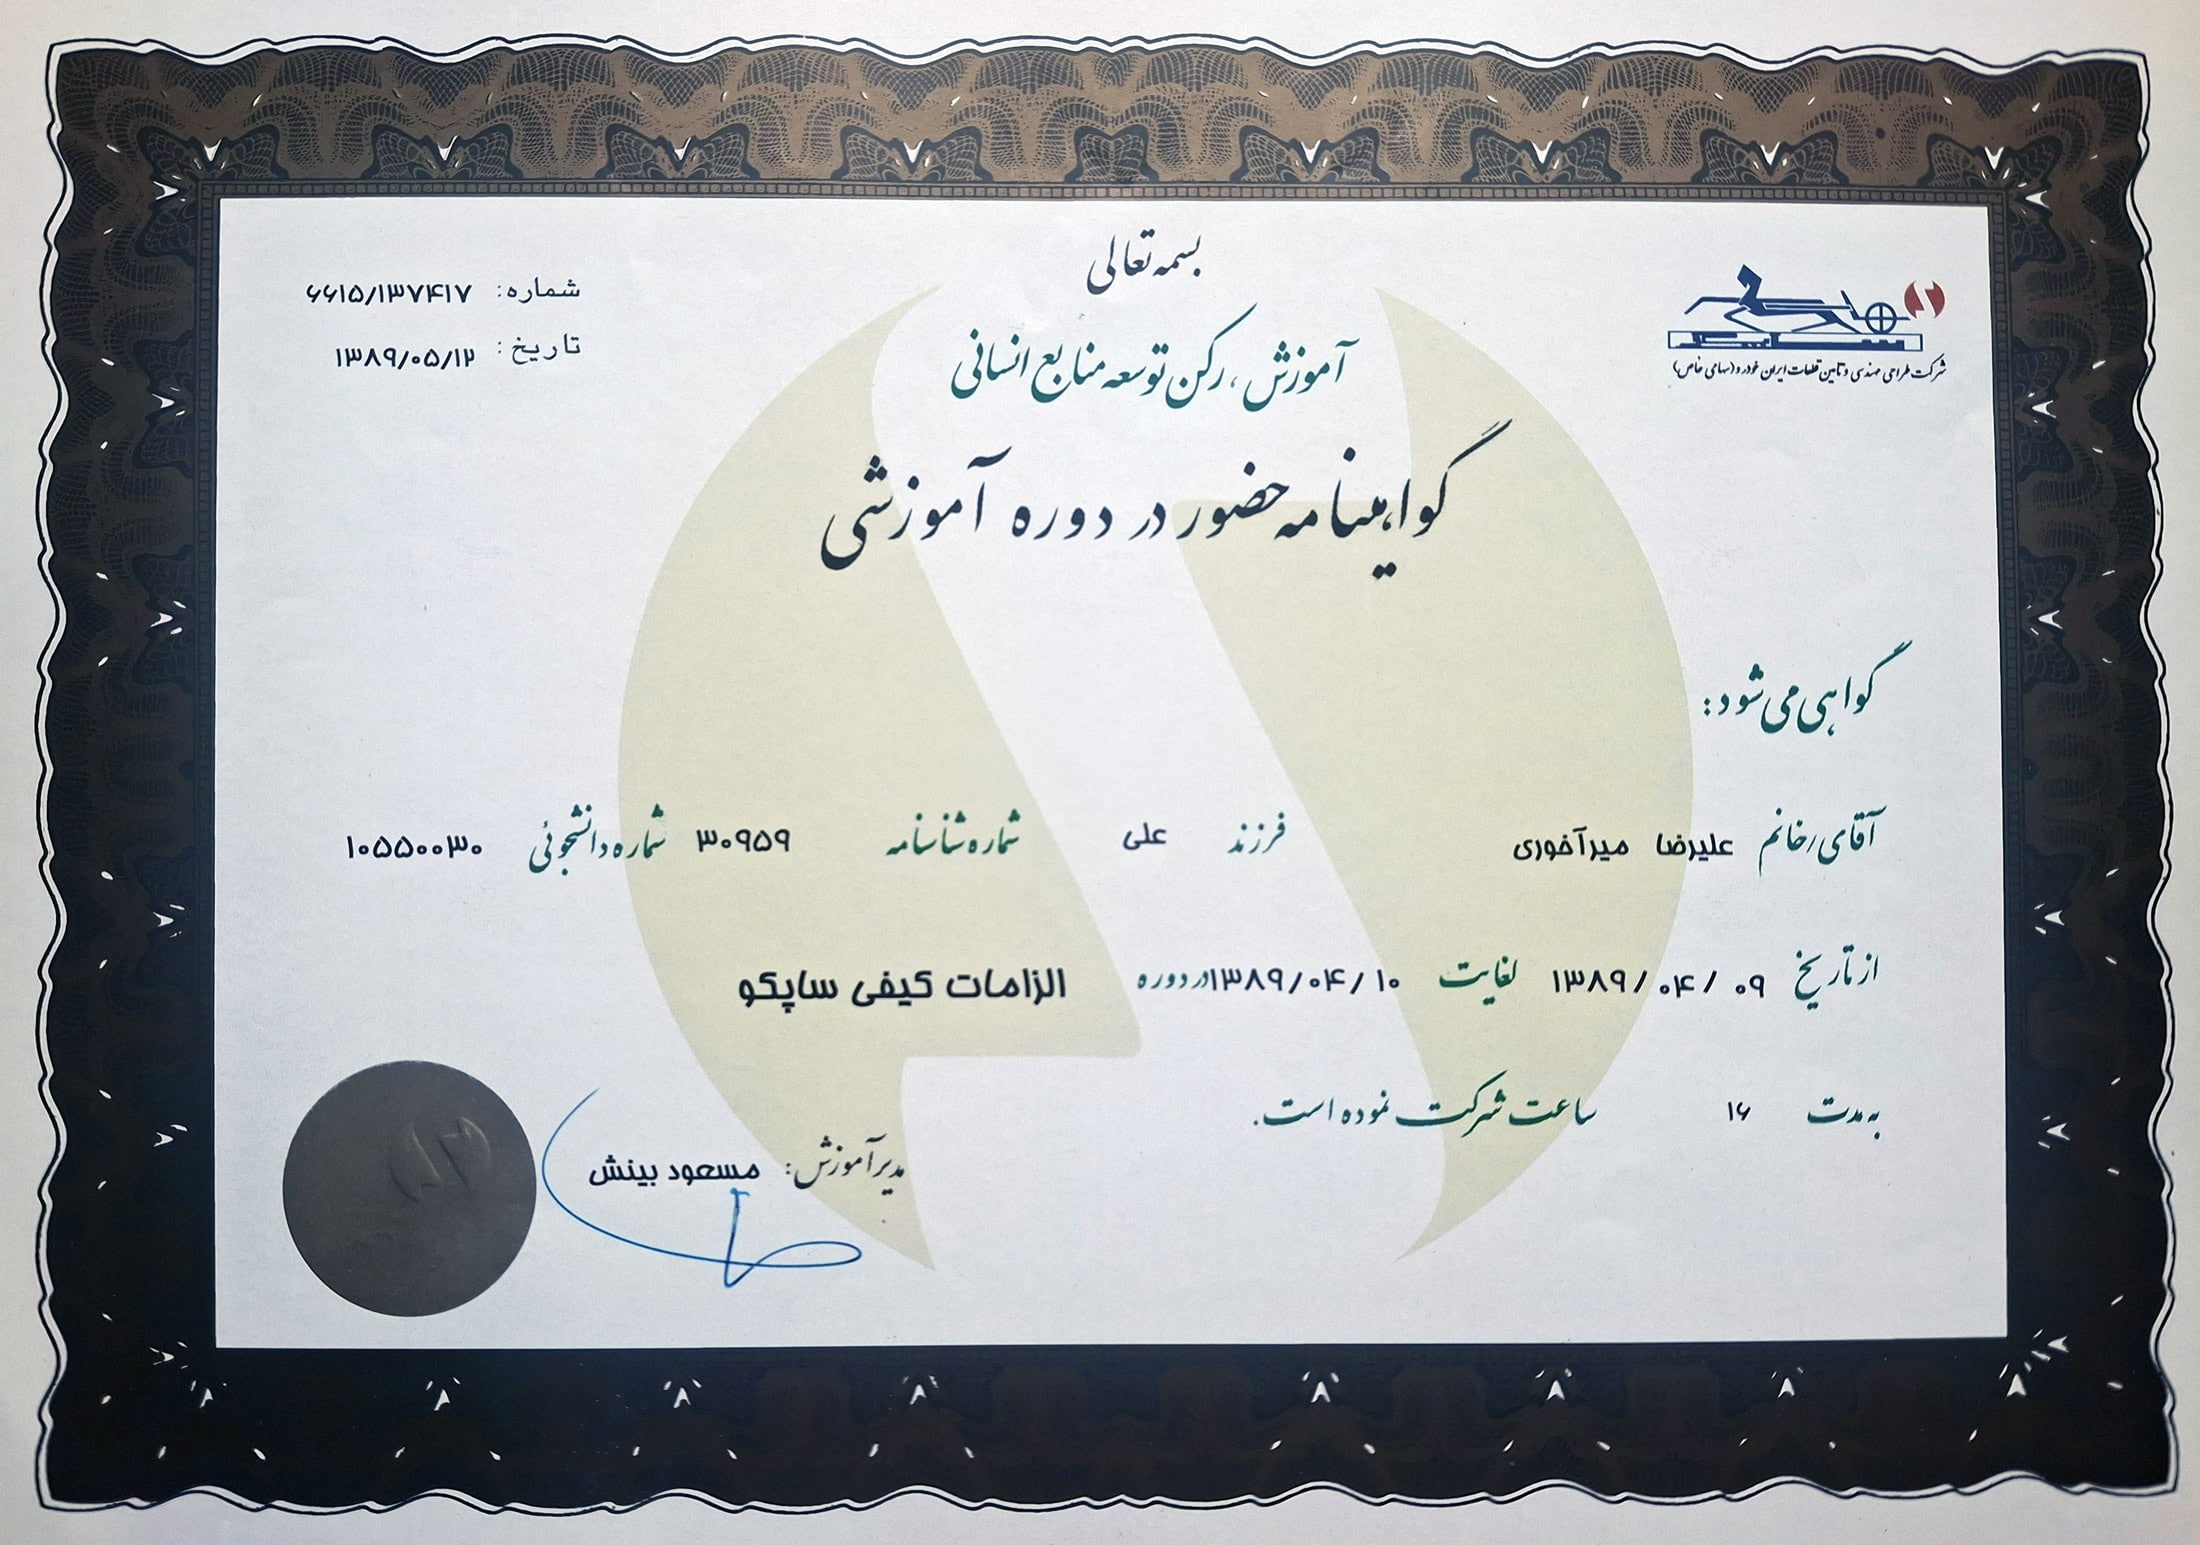 بسمه تعالی
آموزش، رکن توسعه منابع انسانی
گواهینامه حضور در دوره آموزشی
شرکت طراحی مهندسی و تامین قطعات ایران خودرو (سهامی خاص)
شماره: ۶۶۱۵/۱۳۷۴۱۷
تاریخ: ۱۳۸۹/۰۵/۱۲
گواهی می شود:
آقای/خانم علیرضا میرآخوری فرزند علی شماره شناسنامه ۳۰۹۵۹ شماره دانشجوئی ۱۰۵۵۰۰۳۰
از تاریخ ۱۳۸۹/۰۴/۰۹ لغایت ۱۳۸۹/۰۴/۱۰ در دوره الزامات کیفی ساپکو
به مدت ۱۶ ساعت شرکت نموده است.
مدیر آموزش: مسعود بینش